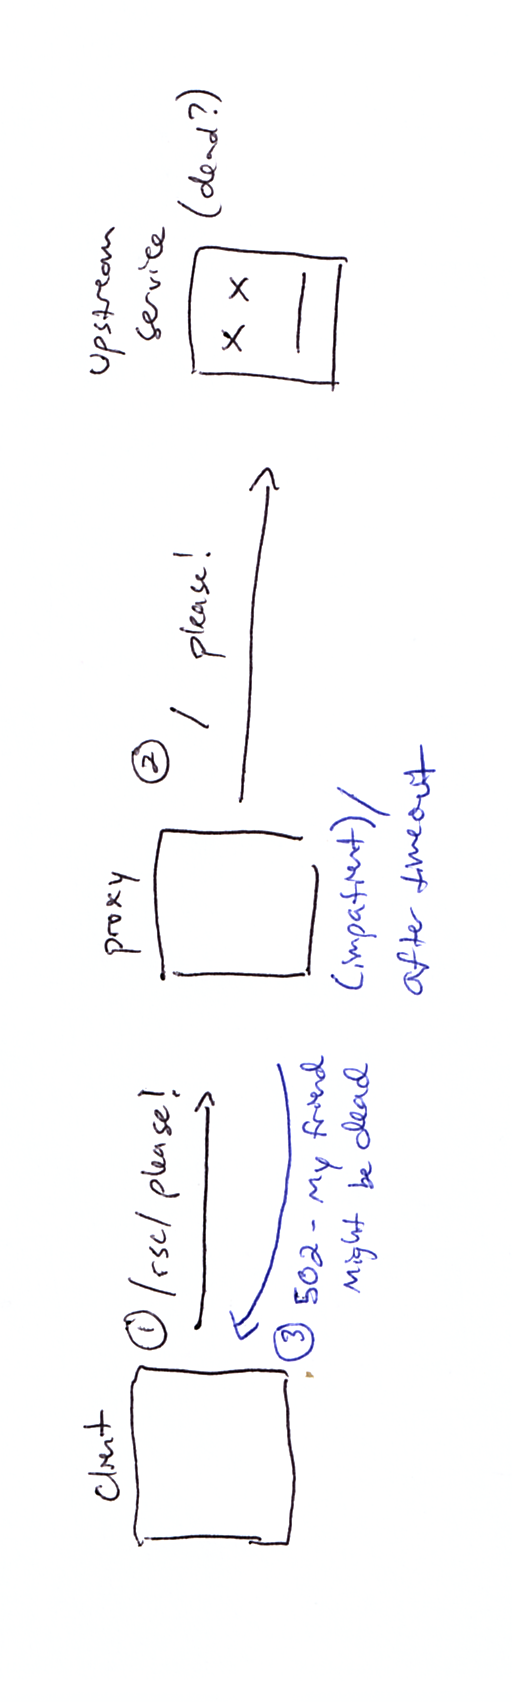 Client
① /rsc/ please!
③ 502 - my friend
might be dead
proxy
(impatient)/
after timeout
② / please!
upstream
service
(dead?)
x x